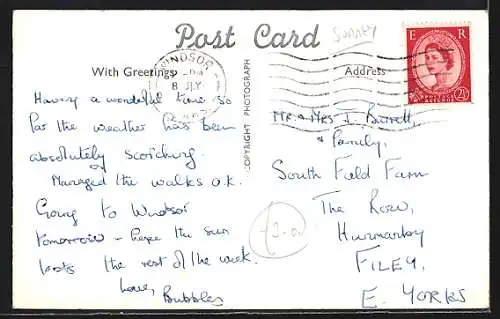 Surrey
Post Card
With Greetings
Address
WINDSOR
8 JLY
COPYRIGHT PHOTOGRAPH
E R
2½
Having a wonderful time so
far the weather has been
absolutely scorching.
Managed the walks o.k.
Going to Windsor
tomorrow - hope the sun
lasts the rest of the week.
Love, Bubbles
Mr. & Mrs J. Barrett
& Family,
South Field Farm
The Row,
Hunmanby
FILEY,
E. YORKS